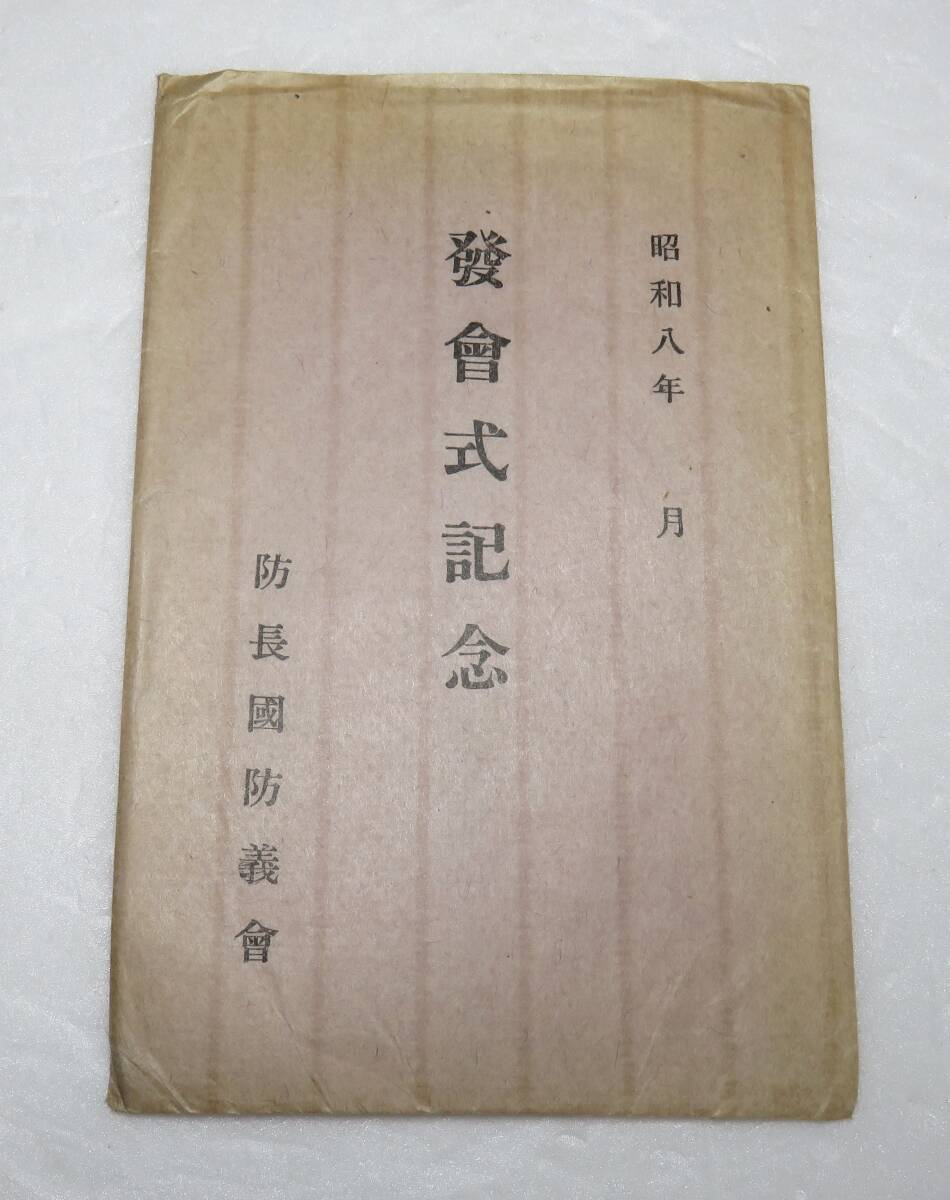 昭和八年　月
發會式記念
防長國防義會